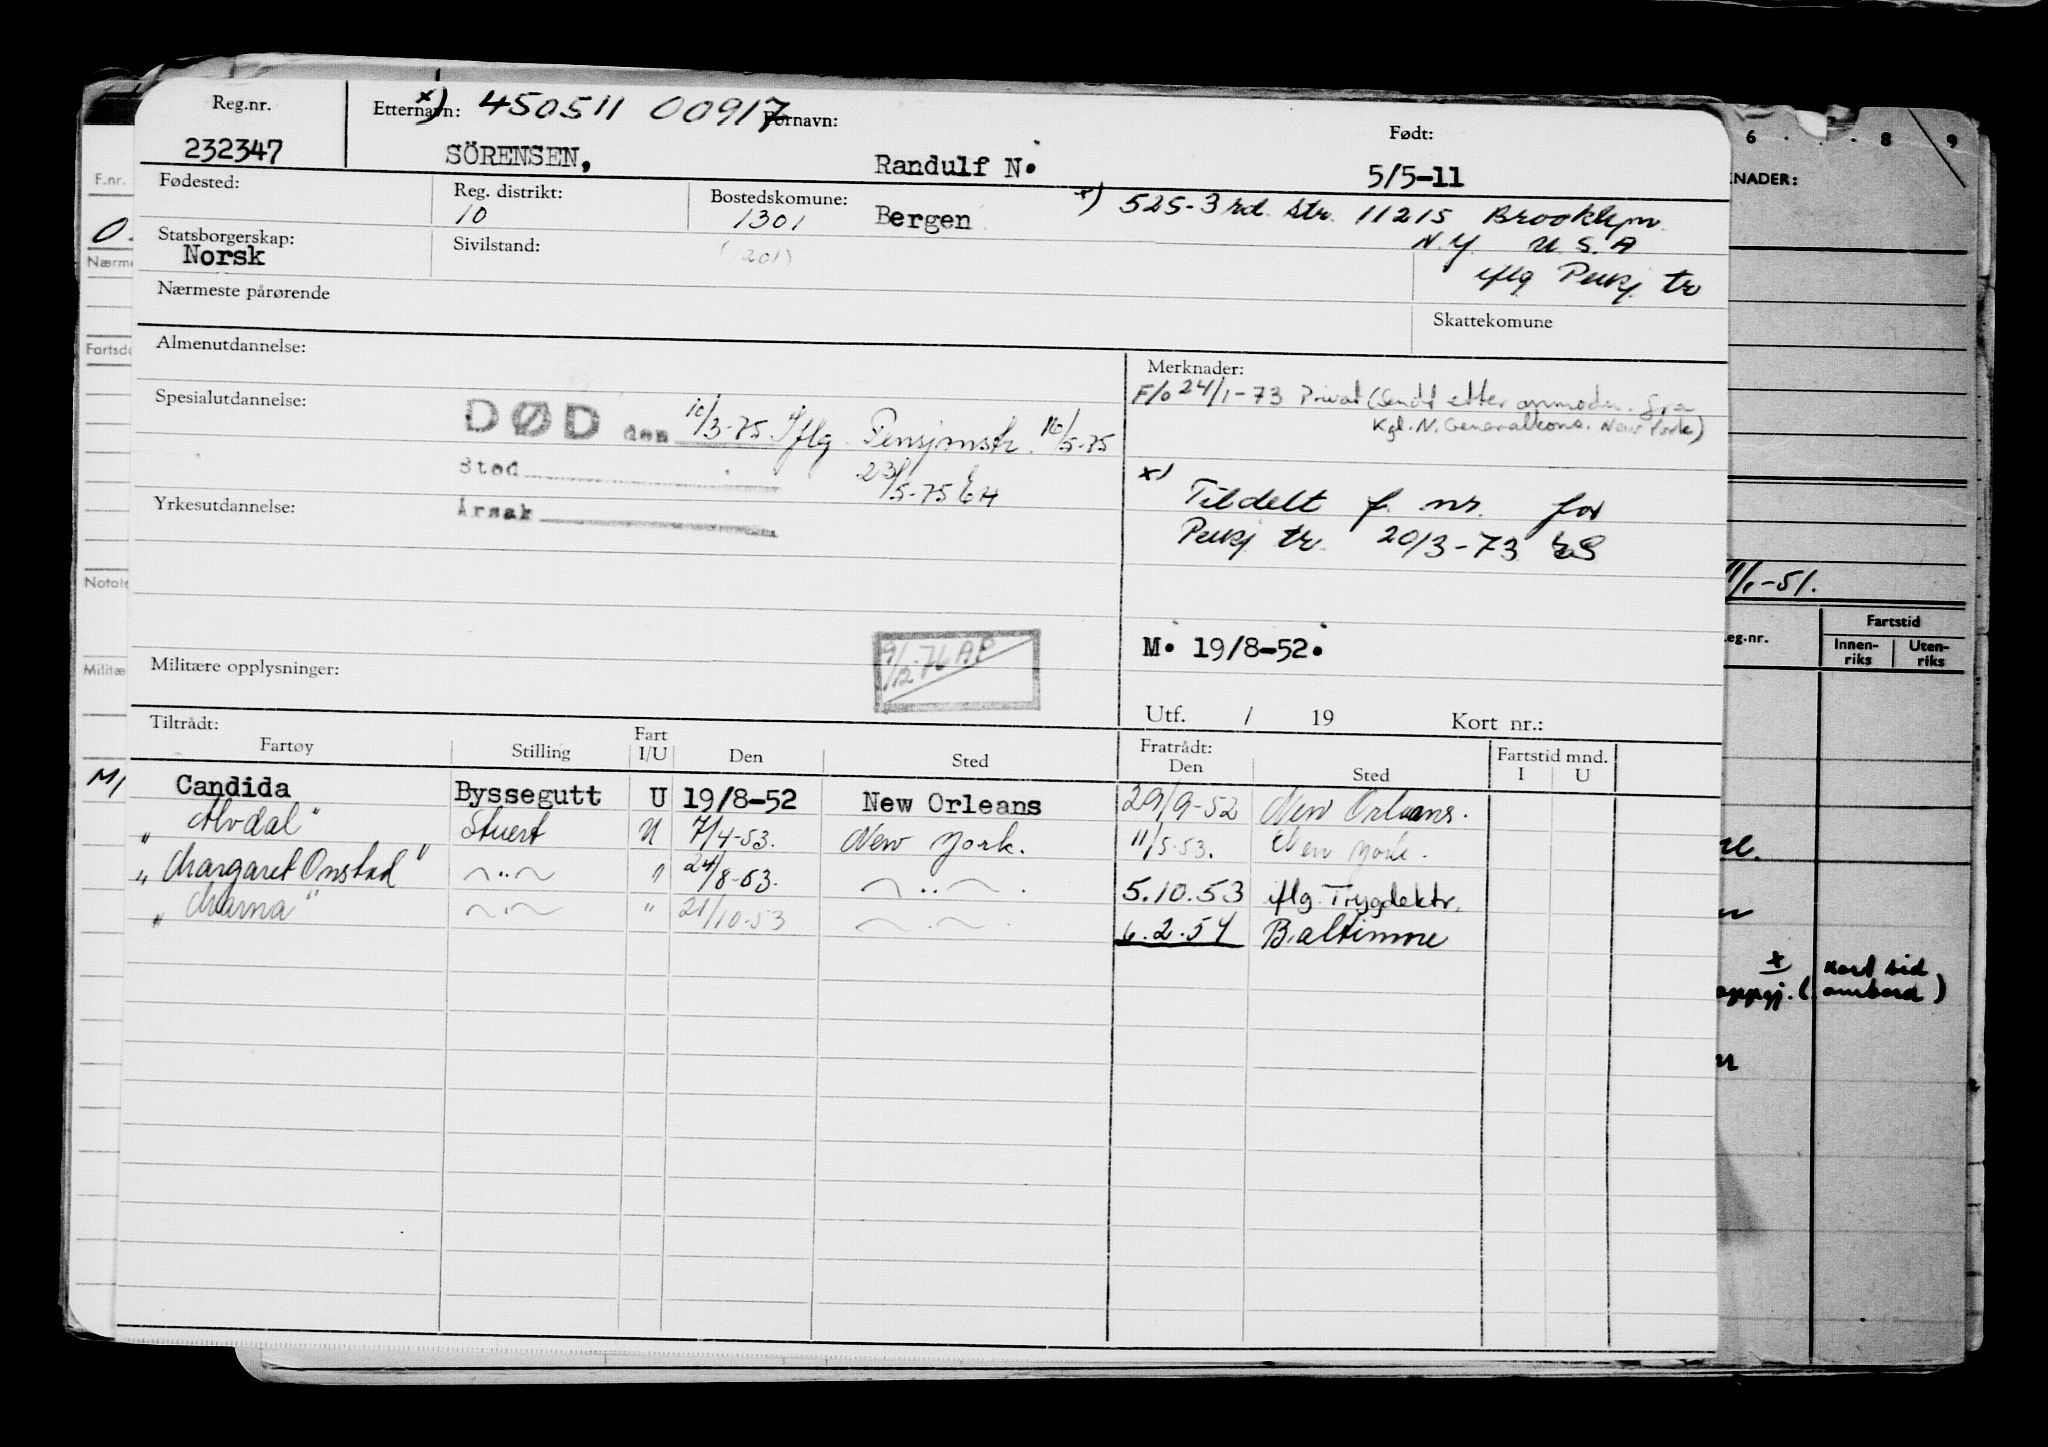 Reg.nr.
232347
Etternavn: x) 450511 00917 Fornavn:
SÖRENSEN, Randulf N.
Født:
5/5-11
Fødested:
Reg. distrikt:
10
Bostedskomune:
1301 Bergen
(1201)
x) 525-3rd. Str. 11215 Brooklyn
N.Y U.S.A
iflg Pensj. tr
Statsborgerskap:
Norsk
Sivilstand:
Nærmeste pårørende
Skattekomune
Almenutdannelse:
Spesialutdannelse:
DØD den 10/3-75. Iflg. Pensjonstr. 16/5-75
23/5-75 EH
Sted
Årsak
Yrkesutdannelse:
Militære opplysninger:
9/12-76 AP
Merknader:
F/o 24/1-73 Privat (Sendt etter anmodn. fra
Kgl. N. Generalkons. New York)
x) Tildelt f. nr. for
Pensj tr. 20/3-73 ES
M. 19/8-52.
Utf. / 19 Kort nr.:
Tiltrådt:
Fartøy Stilling Fart I/U Den Sted
Fratrådt:
Den Sted
Fartstid mnd.
I U
Candida Byssegutt U 19/8-52 New Orleans 29/9-52 New Orleans.
"Alvdal" Stuert U 7/4-53. New York. 11/5-53. New York.
"Margaret Onstad" ~"~ " 24/8-53. ~"~ 5.10.53 iflg. Trygdektr.
"Marna" ~"~ " 21/10-53 ~"~ 6.2.54 Baltimore
F.nr.
O.
Nærme
Fartsd
Notate
Militæ
M/
6 8 9
KNADER:
11/1-51.
eg.nr.
Fartstid
Innen-
riks
Uten-
riks
x
oppgj. (Kort tid
ombord)